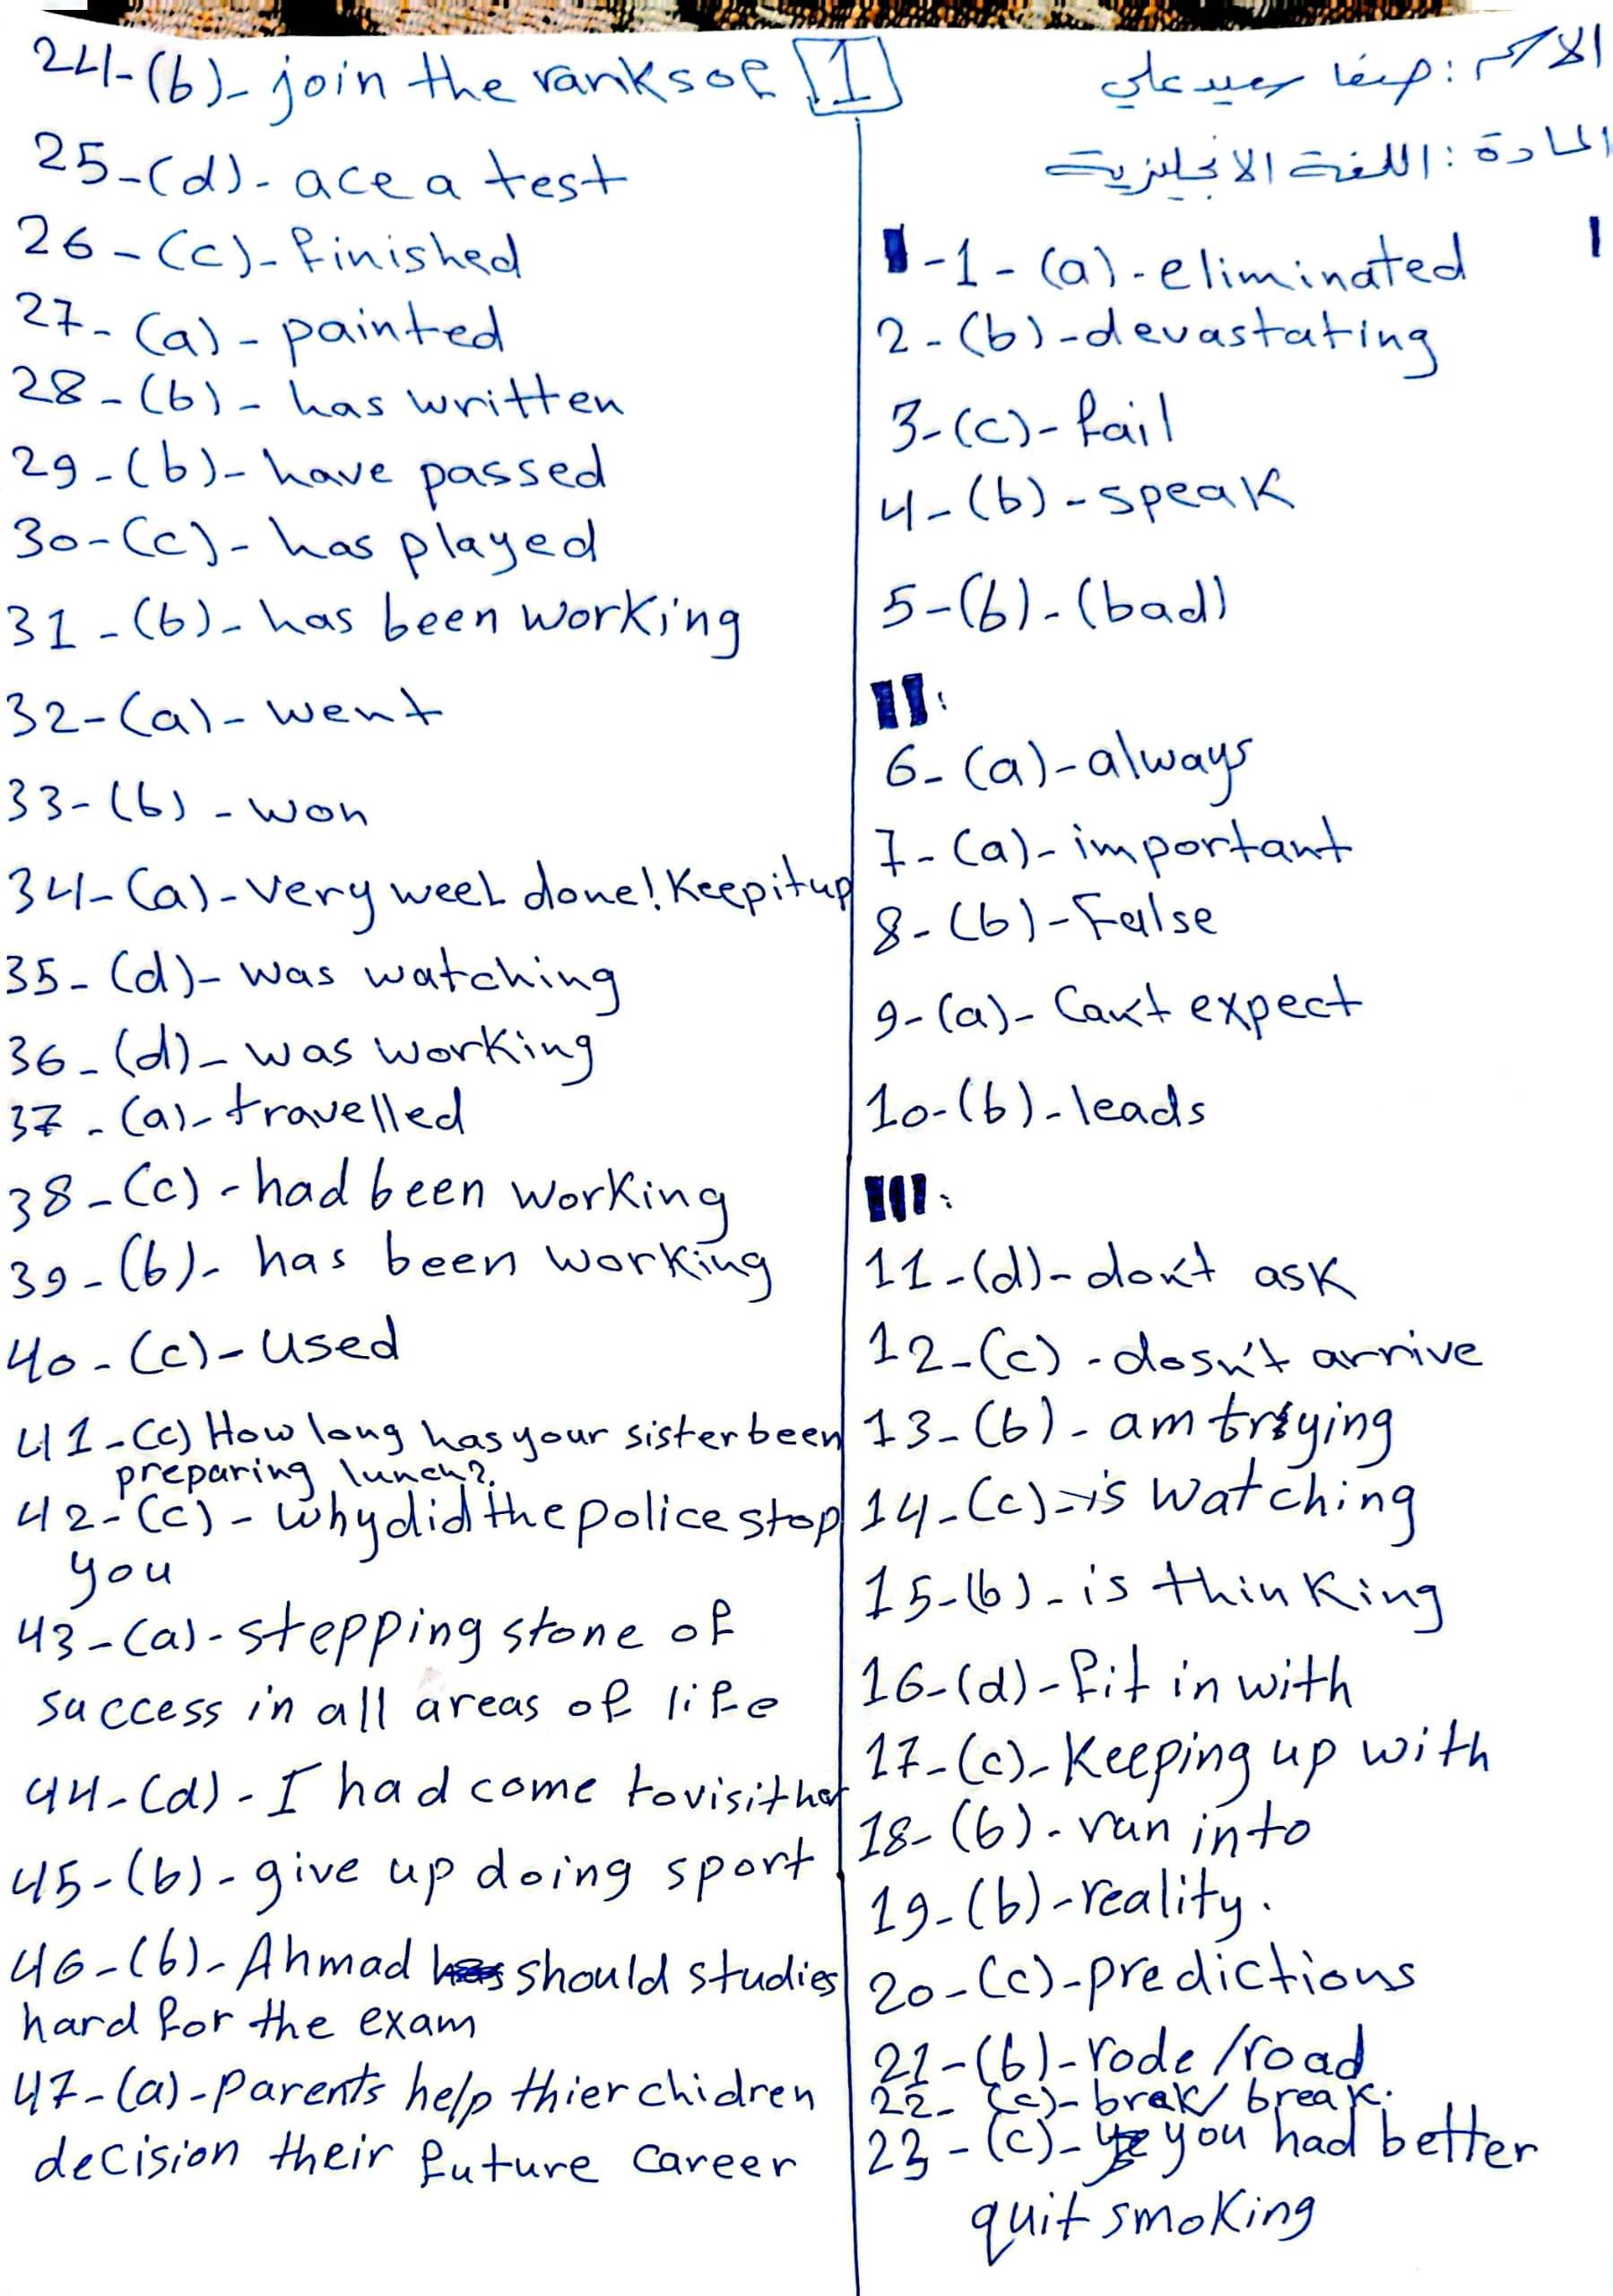 الاسم : صفا سعيد علي
المادة : اللغة الانجليزية
1
I-1-(a)-eliminated
2-(b)-devastating
3-(c)-fail
4-(b)-speak
5-(b)-(bad)
II:
6-(a)-always
7-(a)-important
8-(b)-False
9-(a)-Can't expect
10-(b)-leads
III:
11-(d)-don't ask
12-(c)-dosn't arrive
13-(b)-am trying
14-(c)-is watching
15-(b)-is thinking
16-(d)-fit in with
17-(c)-Keeping up with
18-(b)-ran into
19-(b)-reality.
20-(c)-predictions
21-(b)-rode/road
22-(c)-brak/break.
23-(c)-you had better
quit smoking
24-(b)-join the ranks of
25-(d)-ace a test
26-(c)-finished
27-(a)-painted
28-(b)-has written
29-(b)-have passed
30-(c)-has played
31-(b)-has been working
32-(a)-went
33-(b)-won
34-(a)-very weel done! Keep it up
35-(d)-was watching
36-(d)-was working
37-(a)-travelled
38-(c)-had been working
39-(b)-has been working
40-(c)-used
41-(c) How long has your sister been
preparing lunch?
42-(c)-why did the police stop
you
43-(a)-stepping stone of
success in all areas of life
44-(d)-I had come to visit her
45-(b)-give up doing sport
46-(b)-Ahmad should studies
hard for the exam
47-(a)-parents help thier chidren
decision their future career